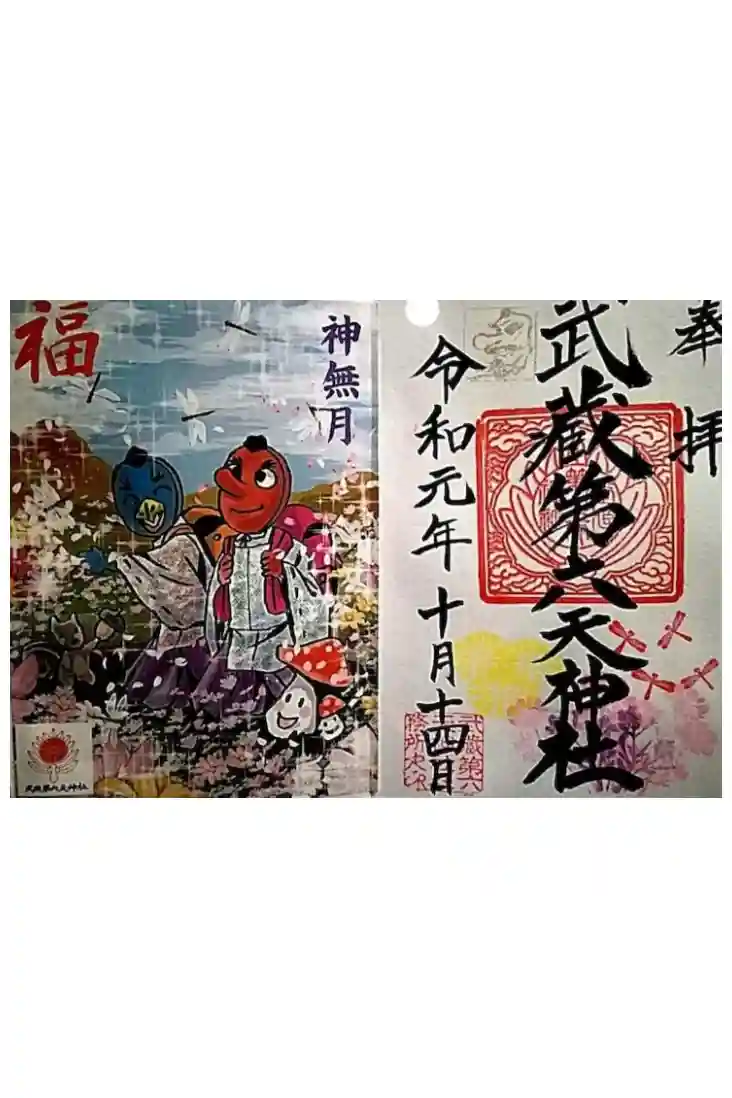 奉拝
武蔵第六天神社
令和元年 十月十四日
神無月
福
武蔵第六天神社